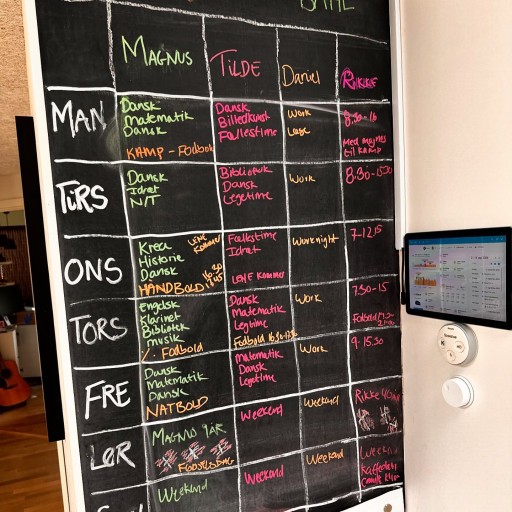 MAGNUS TILDE Daniel RIKKE
MAN
Dansk
Matematik
Dansk
KAMP - Fodbold
Dansk
Billedkunst
Fællestime
Work
8.30-16
Med magnus
til KAMP
TIRS
Dansk
Idræt
N/T
Bibliotek
Dansk
Legetime
Work
8.30-15
ONS
Krea
Historie
Dansk
HANDBOLD
LENE
Kommer
Fællestime
Idræt
LENE Kommer
Work night
7-12.15
TORS
Engelsk
Klarinet
Bibliotek
musik
Fodbold
Dansk
Matematik
Legtime
Fodbold
Work
7.30-15
Fodbold
FRE
Dansk
Matematik
Dansk
NATBOLD
Matematik
Dansk
Legetime
Work
9-15.30
LØR
MAGNUS 9ÅR
FØDSELSDAG
Weekend
Weekend
Rikke
Weekend
Weekend
Weekend
Weekend